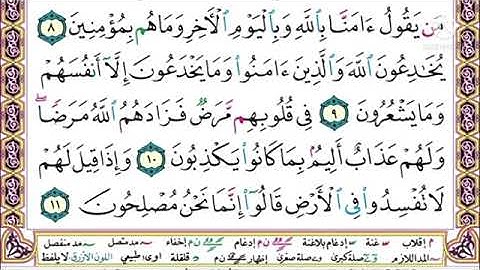 مَن يَقُولُ ءَامَنَّا بِٱللَّهِ وَبِٱلْيَوْمِ ٱلْءَاخِرِ وَمَا هُم بِمُؤْمِنِينَ ٨
يُخَـٰدِعُونَ ٱللَّهَ وَٱلَّذِينَ ءَامَنُوا۟ وَمَا يَخْدَعُونَ إِلَّآ أَنفُسَهُمْ
وَمَا يَشْعُرُونَ ٩ فِى قُلُوبِهِم مَّرَضٌ فَزَادَهُمُ ٱللَّهُ مَرَضًا ۖ
وَلَهُمْ عَذَابٌ أَلِيمٌۢ بِمَا كَانُوا۟ يَكْذِبُونَ ١٠ وَإِذَا قِيلَ لَهُمْ
لَا تُفْسِدُوا۟ فِى ٱلْأَرْضِ قَالُوٓا۟ إِنَّمَا نَحْنُ مُصْلِحُونَ ١١
م إقلاب غنة إدغام بلاغنة إدغام إخفاء مد متصل مد منفصل
المد اللازم صلة كبرى صلة صغرى إظهار قلقلة طبيعي اللون الأزرق لا يلفظ